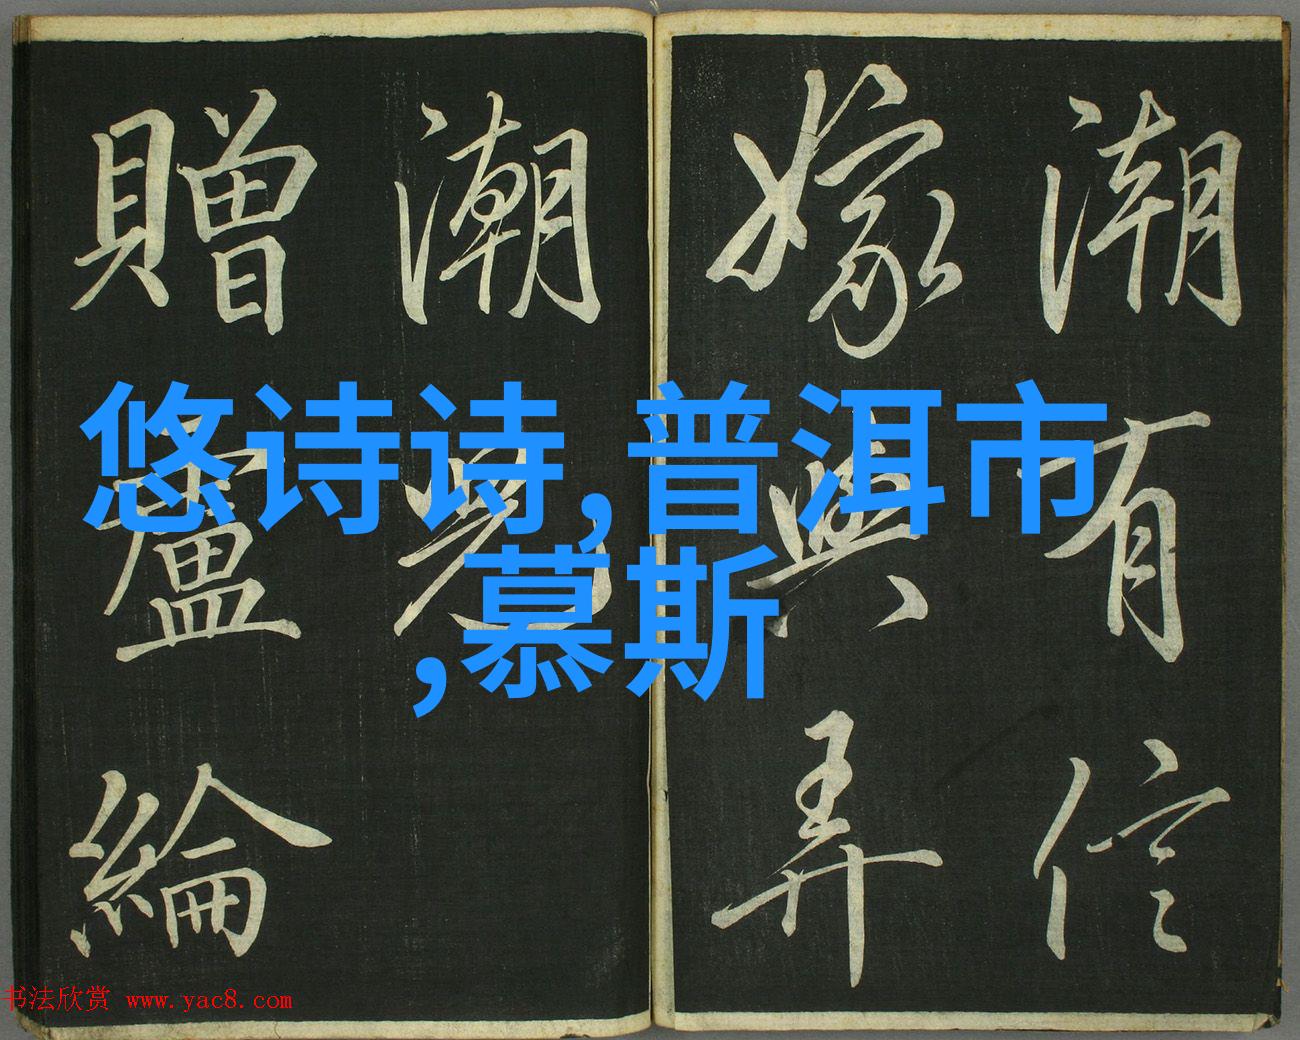 潮有信
嫁與弄
潮兒
贈盧綸
悠诗诗,普洱市
,慕斯
书法欣赏 www.yac8.com